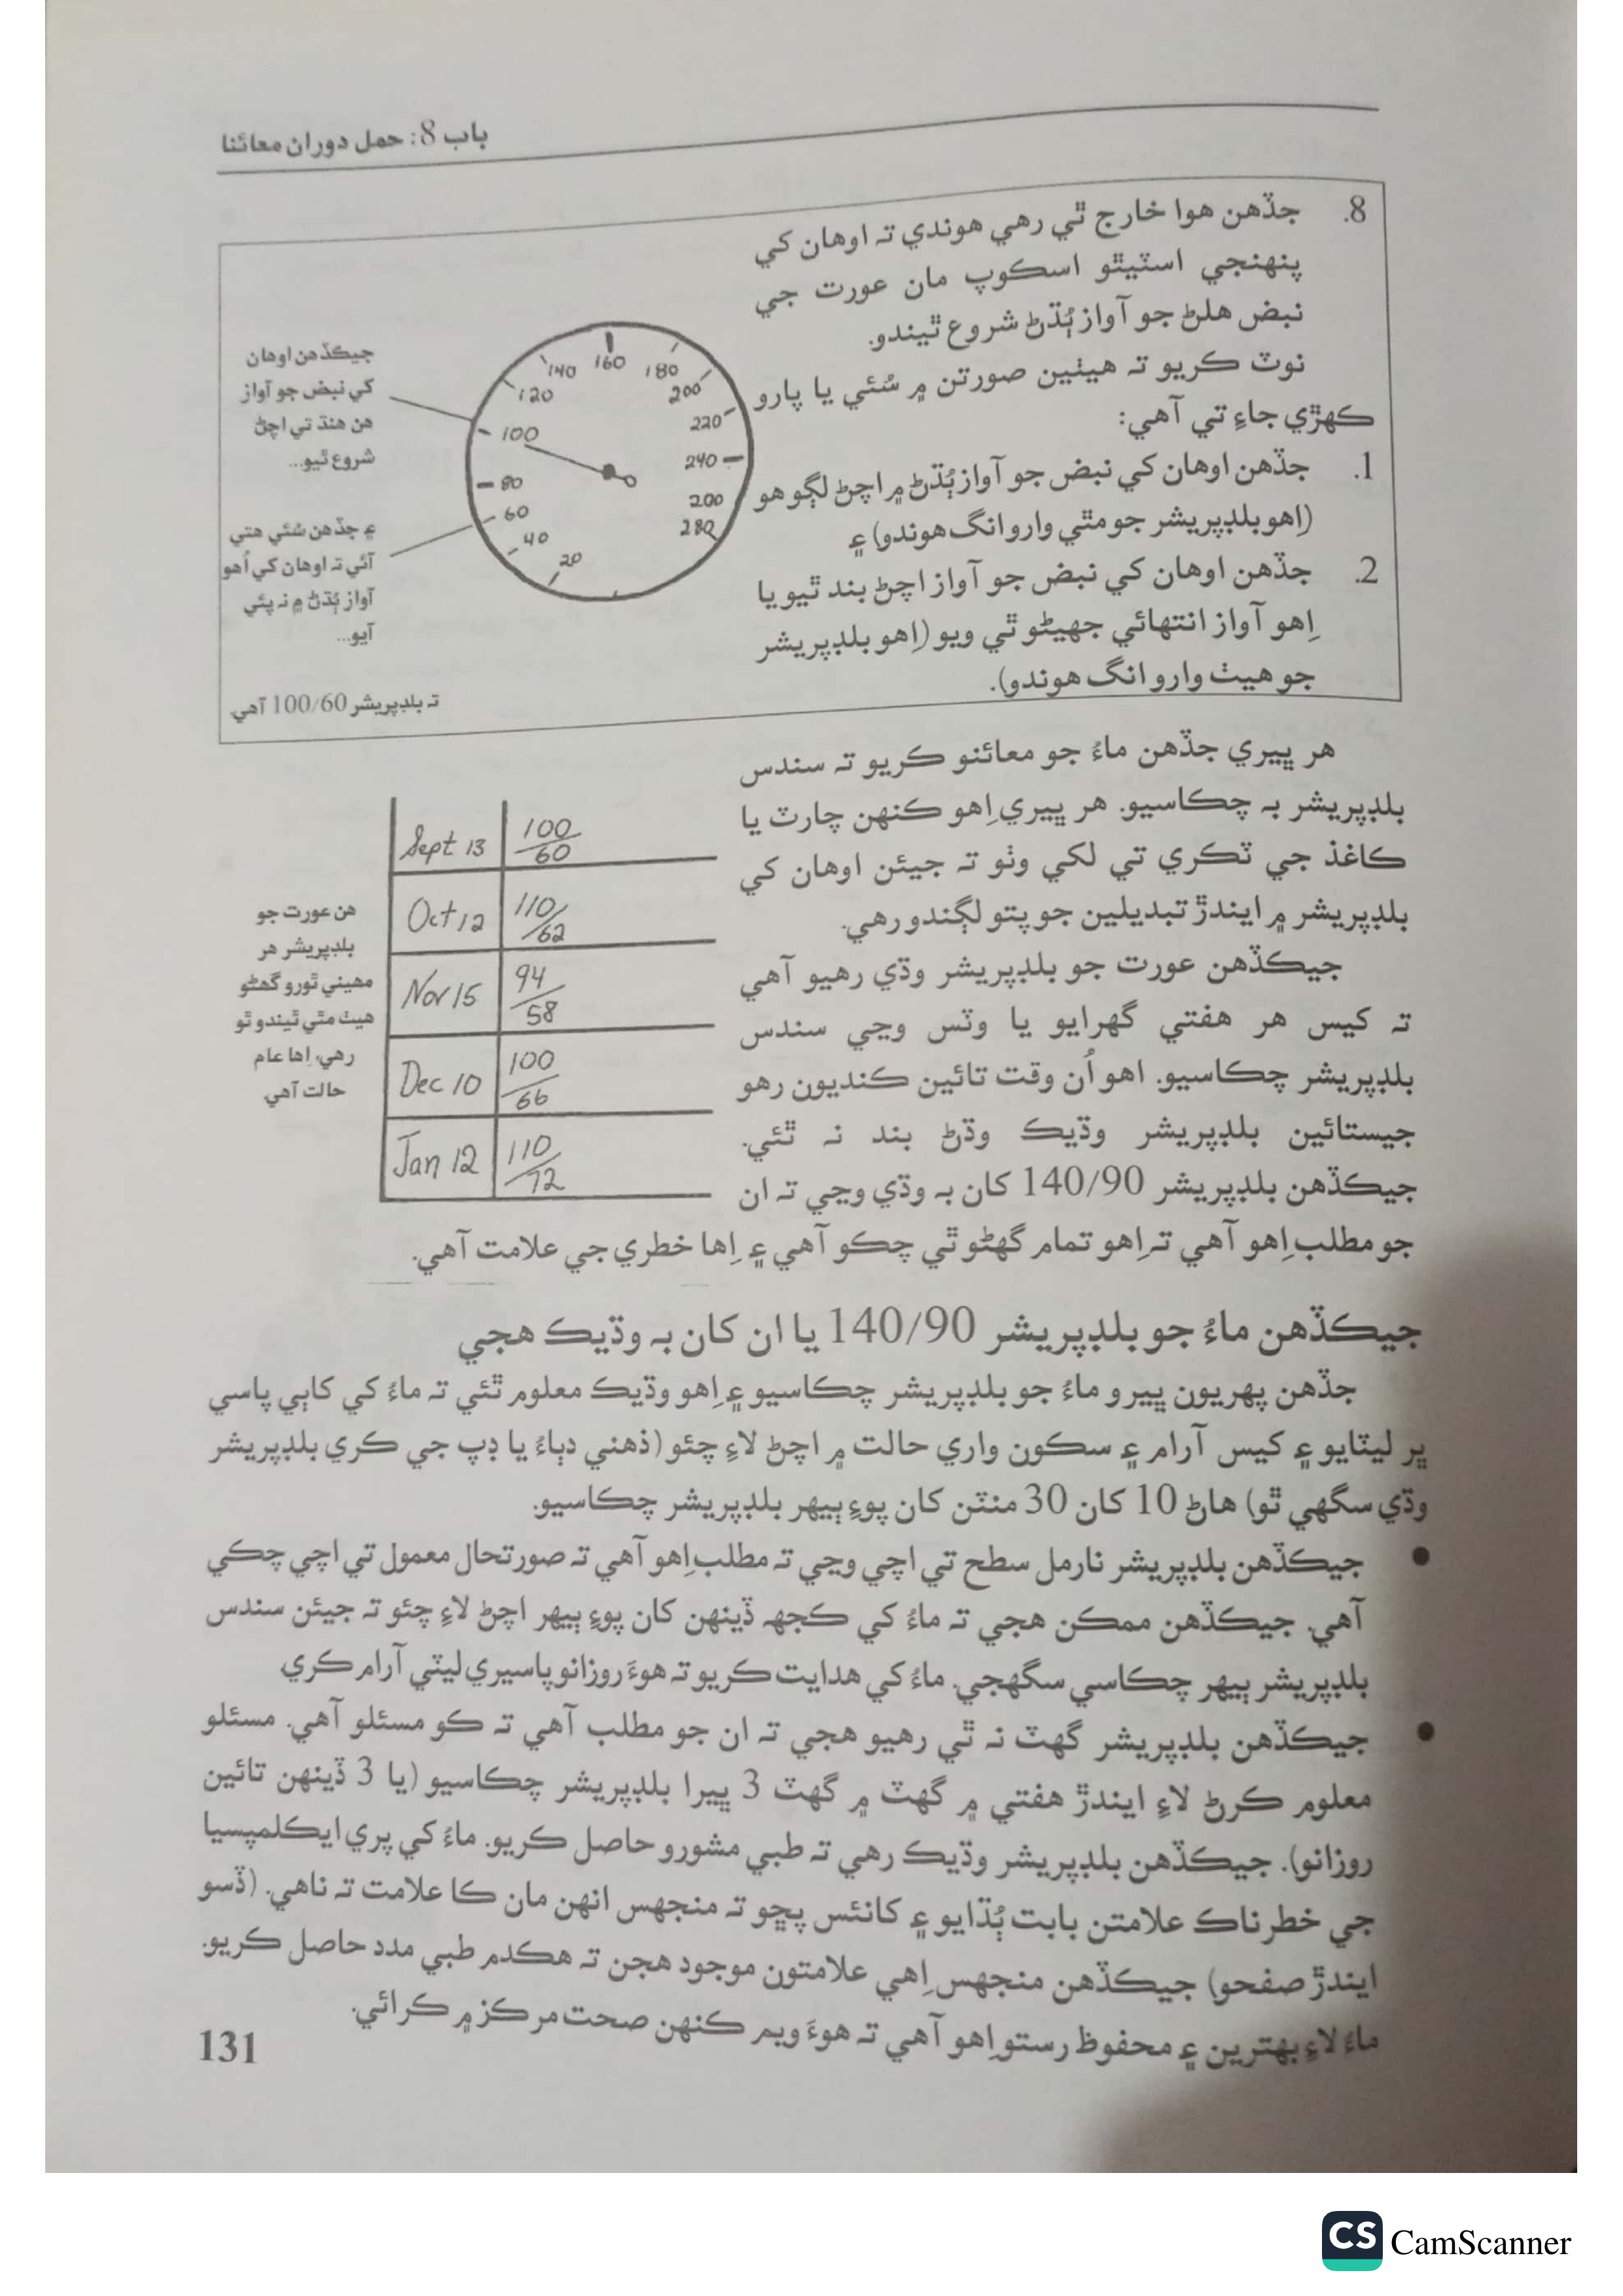 باب 8: حمل دوران معائنا
8. جڏهن هوا خارج ٿي رهي هوندي تہ اوهان کي
پنهنجي اسٽيٿو اسڪوپ مان عورت جي
نبض هلڻ جو آواز ٻُڌڻ شروع ٿيندو.
نوٽ ڪريو تہ هيٺين صورتن ۾ سُئي يا پارو
ڪهڙي جاءِ تي آهي:
1. جڏهن اوهان کي نبض جو آواز ٻُڌڻ ۾ اچڻ لڳو هو
(اِهو بلڊپريشر جو مٿي وارو انگ هوندو) ۽
2. جڏهن اوهان کي نبض جو آواز اچڻ بند ٿيو يا
اِهو آواز انتهائي جهيڻو ٿي ويو (اِهو بلڊپريشر
جو هيٺ وارو انگ هوندو).
جيڪڏهن اوهان
کي نبض جو آواز
هن هنڌ تي اچڻ
شروع ٿيو...
۽ جڏهن سُئي هتي
آئي تہ اوهان کي اُهو
آواز ٻُڌڻ ۾ نہ پئي
آيو...
تہ بلڊپريشر 100/60 آهي.
20
40
60
80
100
120
140
160
180
200
220
240
200
280
هر ڀيري جڏهن ماءُ جو معائنو ڪريو تہ سندس
بلڊپريشر بہ چڪاسيو. هر ڀيري اِهو ڪنهن چارٽ يا
ڪاغذ جي ٽڪري تي لکي وٺو تہ جيئن اوهان کي
بلڊپريشر ۾ ايندڙ تبديلين جو پتو لڳندو رهي.
جيڪڏهن عورت جو بلڊپريشر وڌي رهيو آهي
تہ کيس هر هفتي گهرايو يا وٽس وڃي سندس
بلڊپريشر چڪاسيو. اهو اُن وقت تائين ڪنديون رهو
جيستائين بلڊپريشر وڌيڪ وڌڻ بند نہ ٿئي.
جيڪڏهن بلڊپريشر 140/90 کان بہ وڌي وڃي تہ ان
جو مطلب اِهو آهي تہ اِهو تمام گهڻو ٿي چڪو آهي ۽ اِها خطري جي علامت آهي.
Sept 13 100/60
Oct 12 110/62
Nov 15 94/58
Dec 10 100/66
Jan 12 110/72
هن عورت جو
بلڊپريشر هر
مهيني ٿورو گهڻو
هيٺ مٿي ٿيندو ٿو
رهي. اِها عام
حالت آهي.
جيڪڏهن ماءُ جو بلڊپريشر 140/90 يا ان کان بہ وڌيڪ هجي
جڏهن پهريون ڀيرو ماءُ جو بلڊپريشر چڪاسيو ۽ اِهو وڌيڪ معلوم ٿئي تہ ماءُ کي کاٻي پاسي
ڀر ليٽايو ۽ کيس آرام ۽ سڪون واري حالت ۾ اچڻ لاءِ چئو (ذهني دٻاءُ يا ڊپ جي ڪري بلڊپريشر
وڌي سگهي ٿو) هاڻ 10 کان 30 منٽن کان پوءِ ٻيهر بلڊپريشر چڪاسيو.
● جيڪڏهن بلڊپريشر نارمل سطح تي اچي وڃي تہ مطلب اِهو آهي تہ صورتحال معمول تي اچي چڪي
آهي. جيڪڏهن ممڪن هجي تہ ماءُ کي ڪجهہ ڏينهن کان پوءِ ٻيهر اچڻ لاءِ چئو تہ جيئن سندس
بلڊپريشر ٻيهر چڪاسي سگهجي. ماءُ کي هدايت ڪريو تہ هوءَ روزانو پاسيري ليٽي آرام ڪري.
● جيڪڏهن بلڊپريشر گهٽ نہ ٿي رهيو هجي تہ ان جو مطلب آهي تہ ڪو مسئلو آهي. مسئلو
معلوم ڪرڻ لاءِ ايندڙ هفتي ۾ گهٽ ۾ گهٽ 3 ڀيرا بلڊپريشر چڪاسيو (يا 3 ڏينهن تائين
روزانو). جيڪڏهن بلڊپريشر وڌيڪ رهي تہ طبي مشورو حاصل ڪريو. ماءُ کي پري ايڪلمپسيا
جي خطرناڪ علامتن بابت ٻُڌايو ۽ کانئس پڇو تہ منجهس انهن مان ڪا علامت تہ ناهي. (ڏسو
ايندڙ صفحو) جيڪڏهن منجهس اِهي علامتون موجود هجن تہ هڪدم طبي مدد حاصل ڪريو.
ماءُ لاءِ بهترين ۽ محفوظ رستو اِهو آهي تہ هوءَ ويم ڪنهن صحت مرڪز ۾ ڪرائي.
131
CS CamScanner